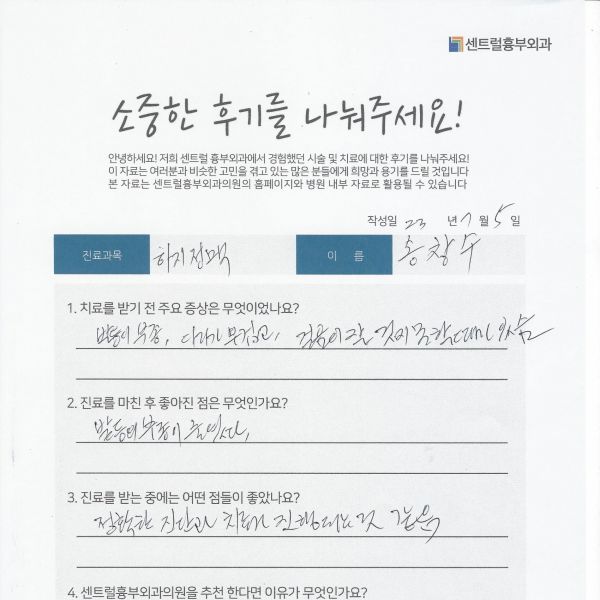 센트럴흉부외과
소중한 후기를 나눠주세요!
안녕하세요! 저희 센트럴 흉부외과에서 경험했던 시술 및 치료에 대한 후기를 나눠주세요!
이 자료는 여러분과 비슷한 고민을 겪고 있는 많은 분들에게 희망과 용기를 드릴 것입니다
본 자료는 센트럴흉부외과의원의 홈페이지와 병원 내부 자료로 활용될 수 있습니다
작성일 23 년 7 월 5 일
진료과목 하지정맥 이 름 송창수
1. 치료를 받기 전 주요 증상은 무엇이었나요?
부종, 다리가 무겁고,
2. 진료를 마친 후 좋아진 점은 무엇인가요?
발등의 부종이
3. 진료를 받는 중에는 어떤 점들이 좋았나요?
정확한 진단과 치료가 진행되는 것 같음
4. 센트럴흉부외과의원을 추천 한다면 이유가 무엇인가요?